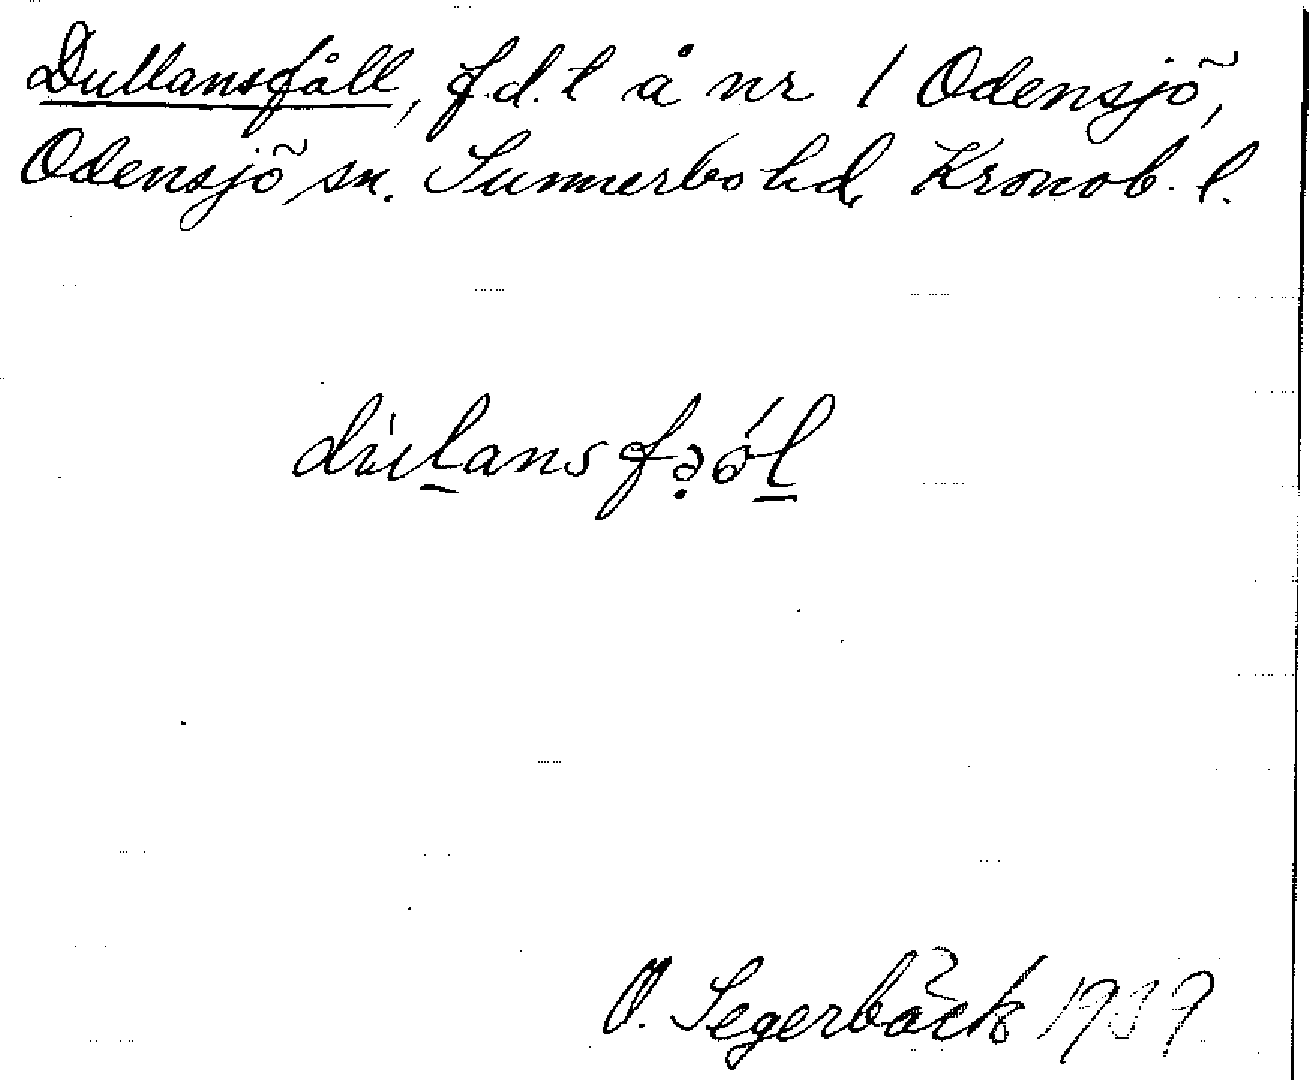 Dullansfåll, f.d. l å nr 1 Odensjö,
Odensjö sn. Sunnerbo hd, Kronob. l.
dùl̲ansfə̣ól̲
O. Segerbäck 1939